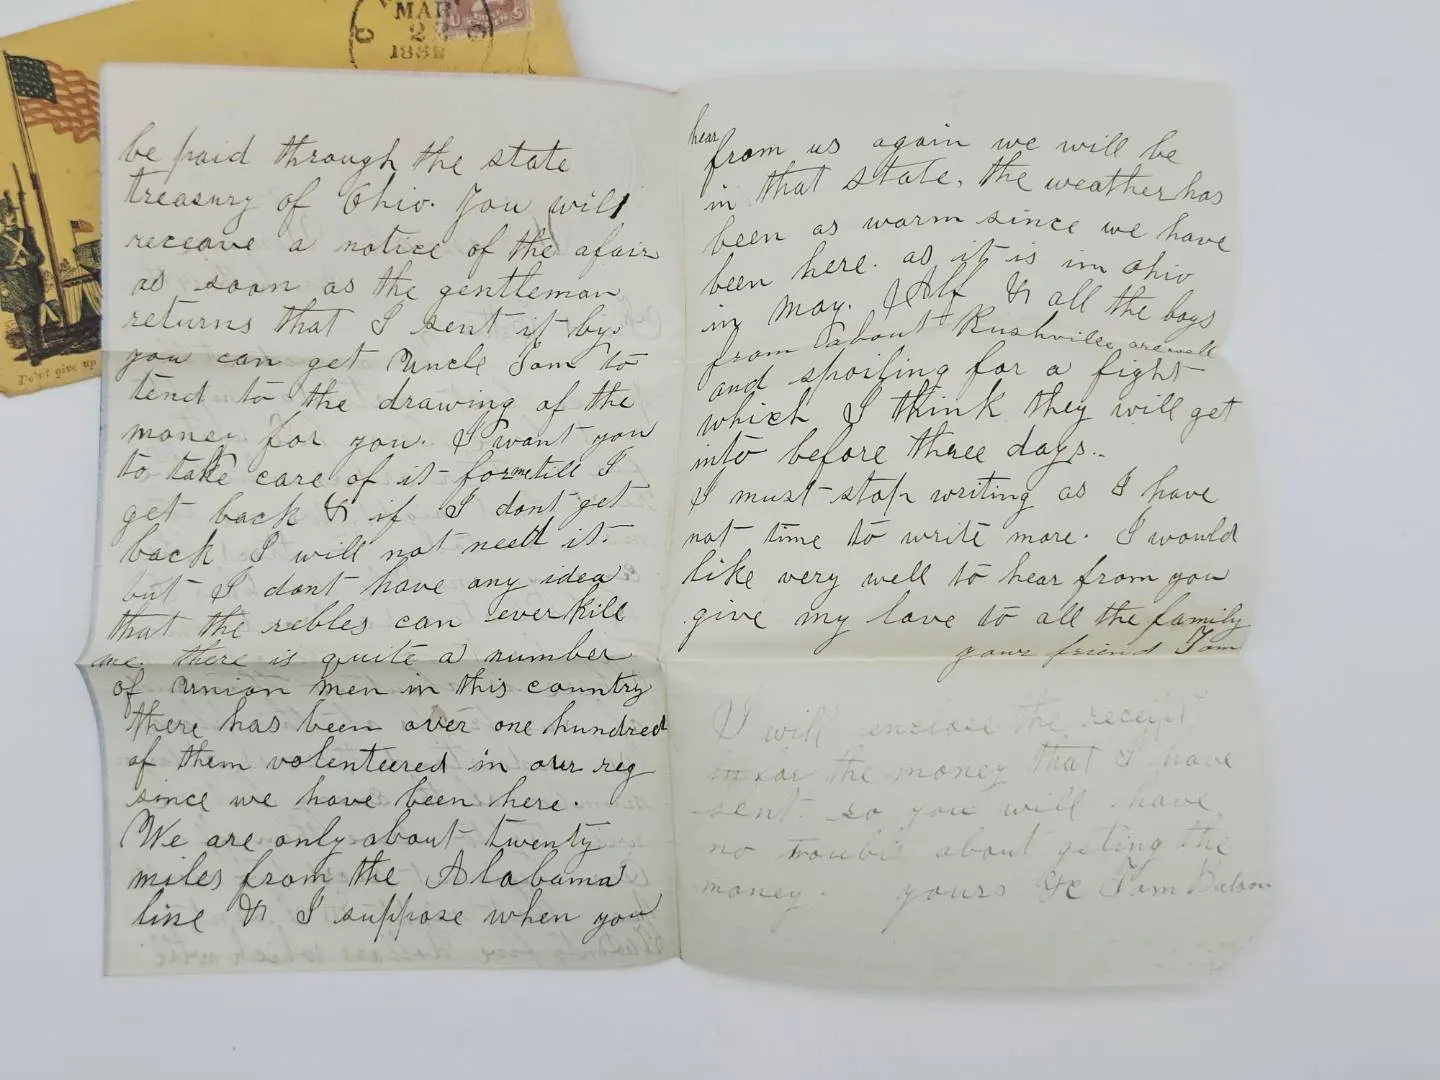 MAR
1862
Don't give up
be paid through the state
treasury of Ohio. You will
receave a notice of the afair
as soon as the gentleman
returns that I sent it by.
you can get Uncle Tom to
tend to the drawing of the
money for you. I want you
to take care of it for me till I
get back & if I dont get
back I will not need it.
but I dont have any idea
that the rebles can ever kill
me. there is quite a number
of Union men in this country
there has been over one hundred
of them volenteered in our reg
since we have been here.
We are only about twenty
miles from the Alabama
line & I suppose when you
hear
from us again we will be
in that state. the weather has
been as warm since we have
been here. as it is in ohio
in may. Alf & all the boys
from about Rushville are well
and spoiling for a fight
which I think they will get
into before three days..
I must stop writing as I have
not time to write more. I would
like very well to hear from you
give my love to all the family
your friend Tom
I will enclose the receipt
for the money that I have
sent. so you will have
no trouble about geting the
money. yours &c Tom